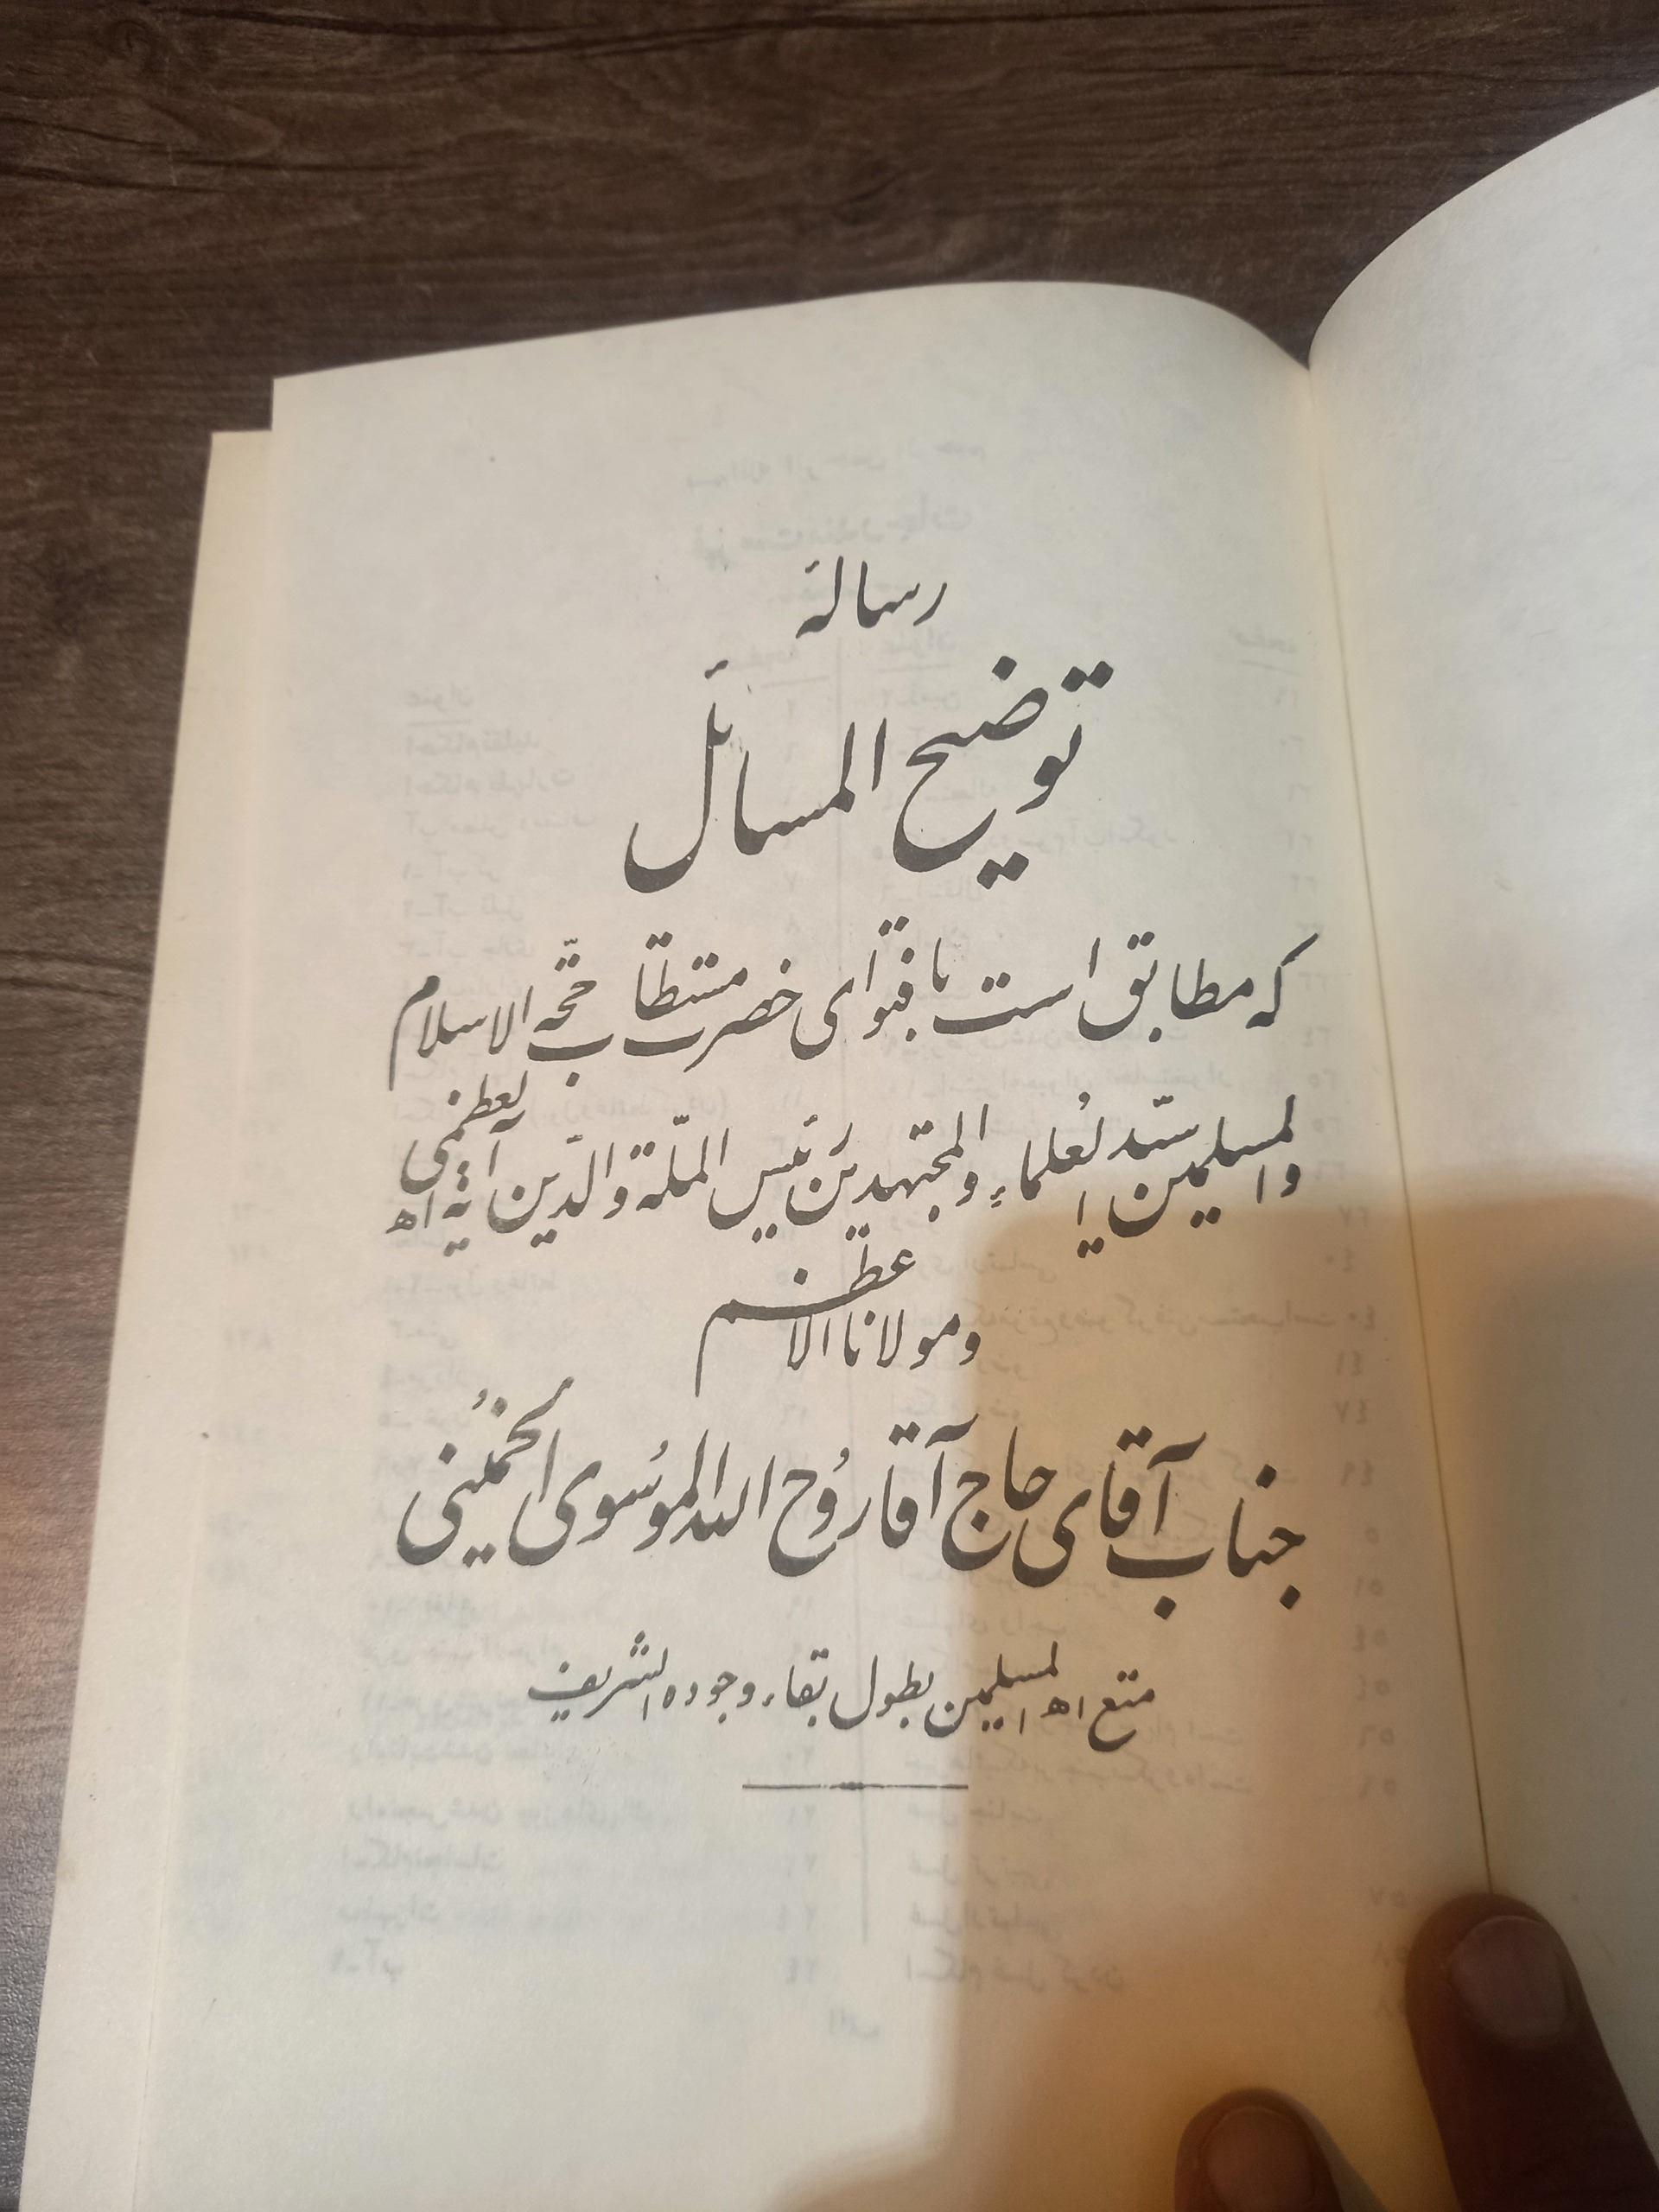 رسالهٔ
توضیح المسائل
که مطابق است با فتوای حضرت مستطاب حجة الاسلام
والمسلمین سید العلماء والمجتهدین رئیس الملة والدین آیة الله العظمی
ومولانا الاعظم
جناب آقای حاج آقا روح الله الموسوی الخمینی
متع الله المسلمین بطول بقاء وجوده الشریف